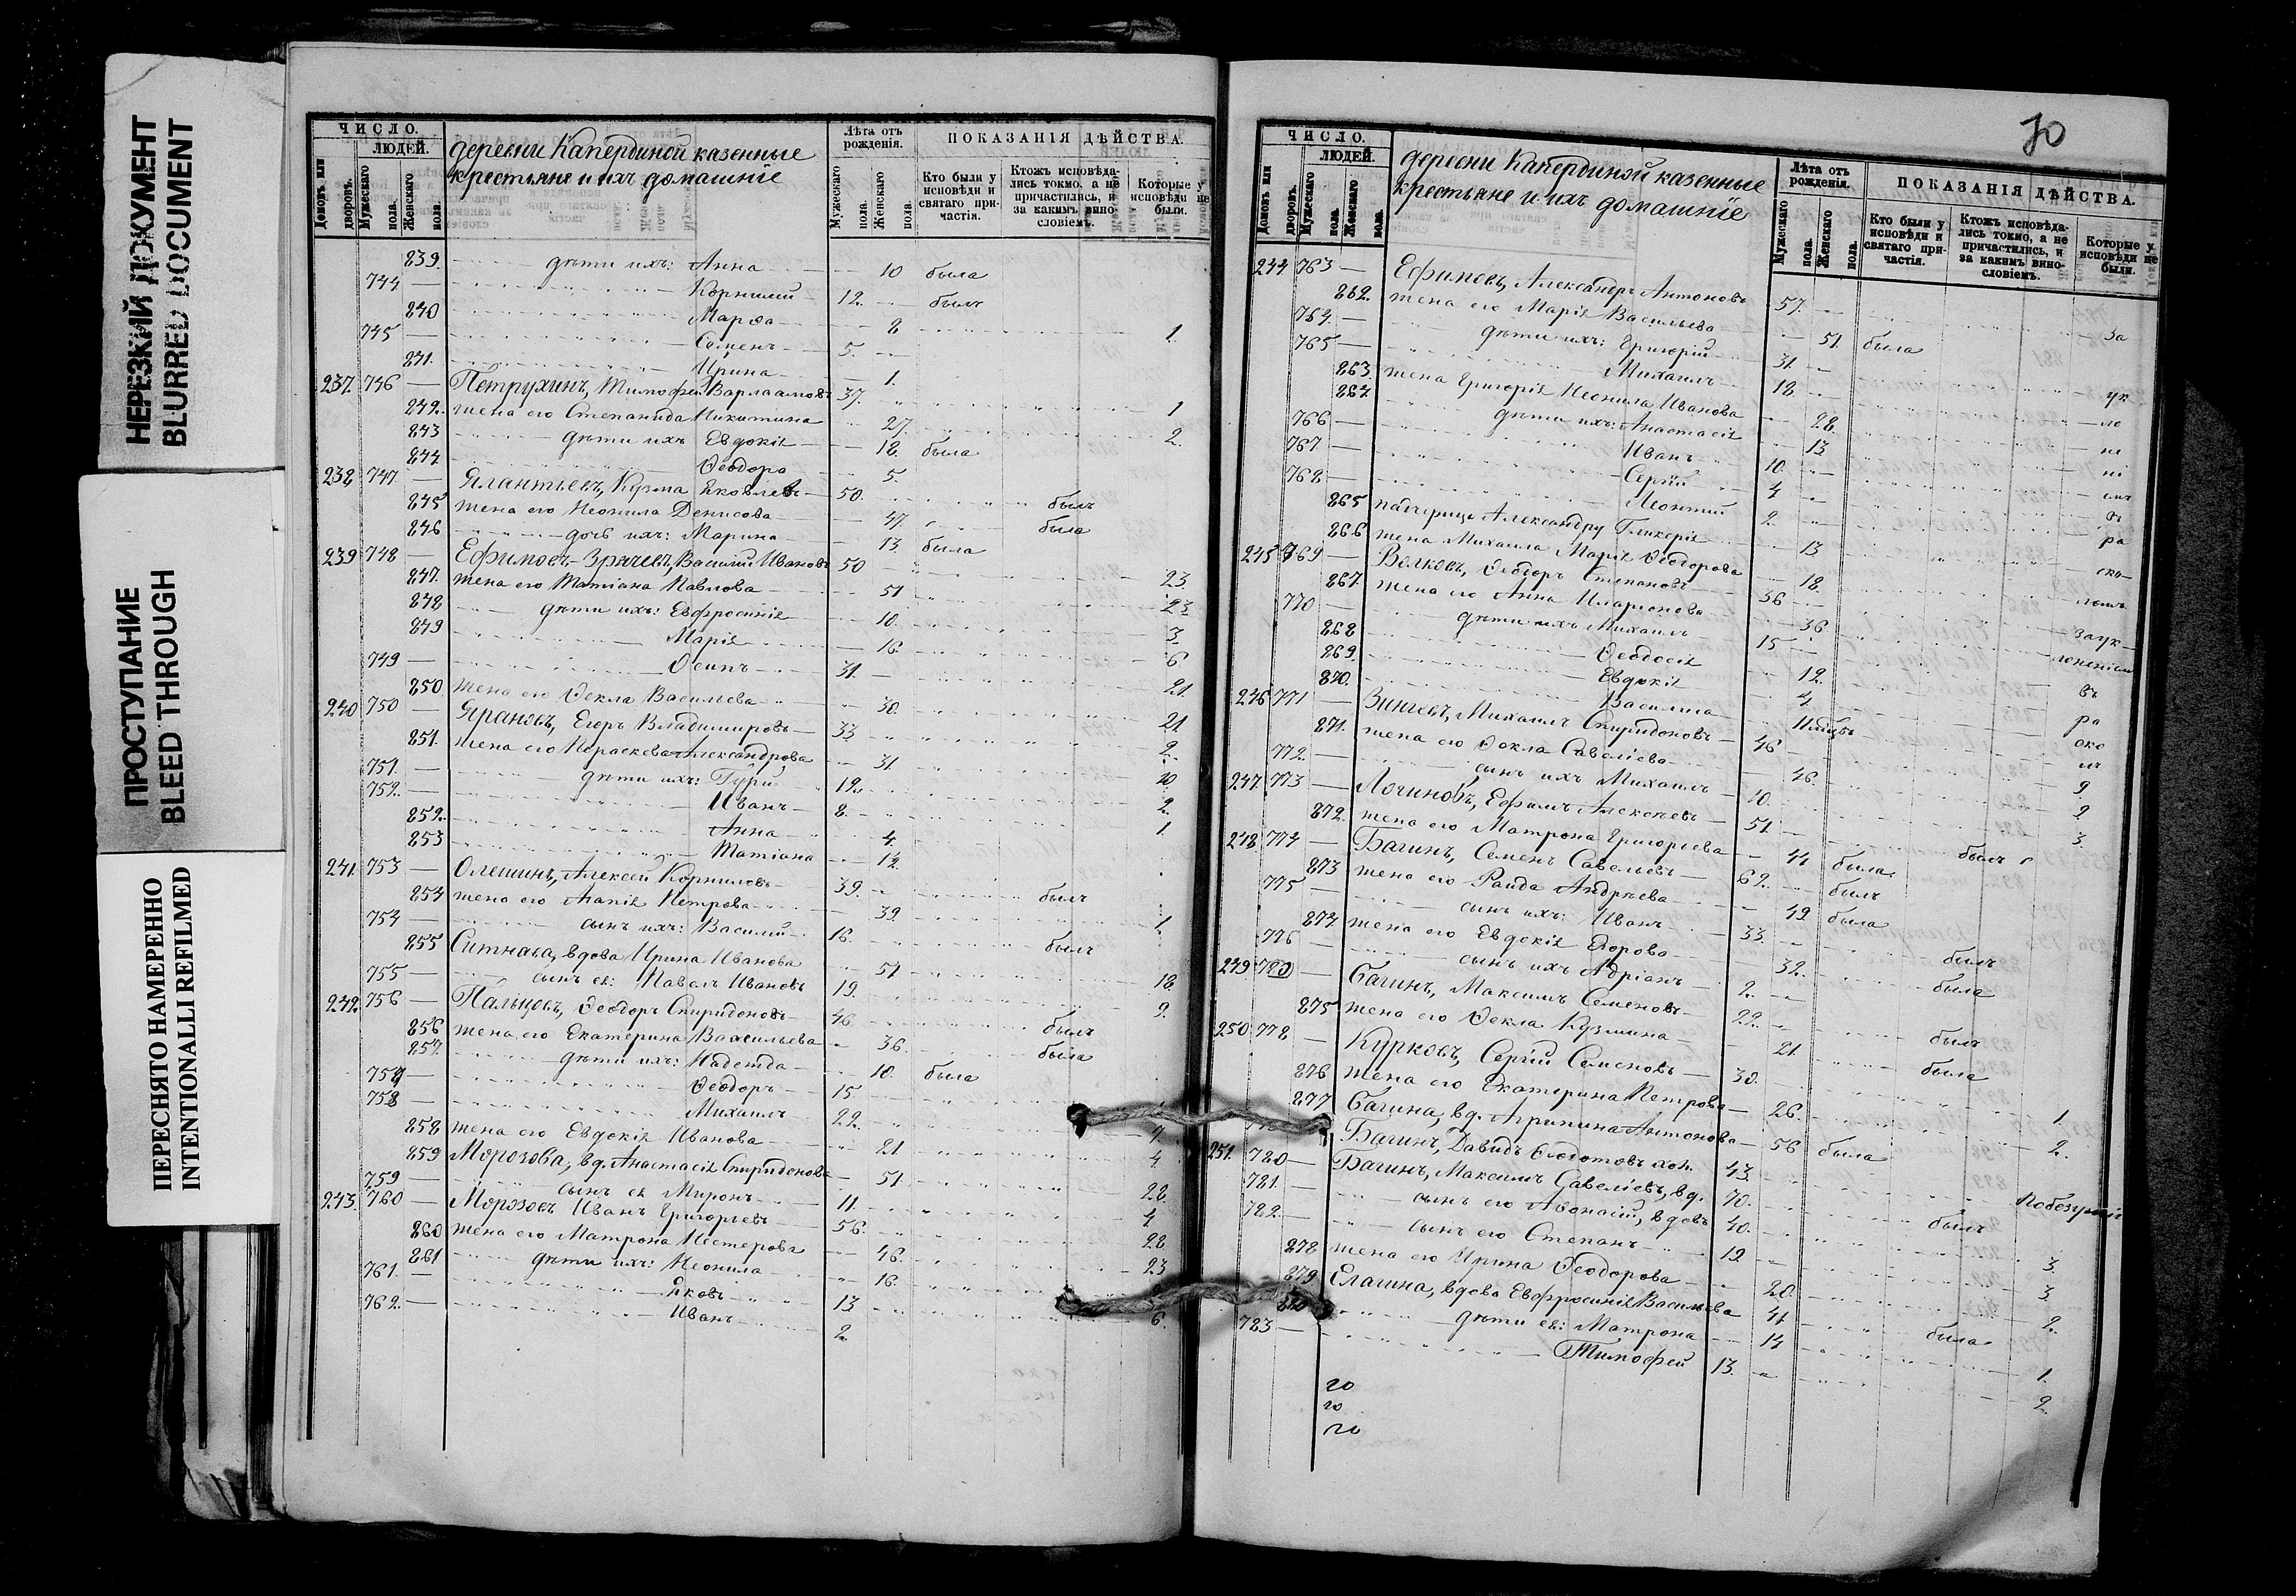 НЕРЕЗКИЙ ДОКУМЕНТ
BLURRED DOCUMENT
ПРОСТУПАНИЕ
BLEED THROUGH
ПЕРЕСНЯТО НАМЕРЕННО
INTENTIONALLI REFILMED
ЧИСЛО.
ЛЮДЕЙ.
Домовъ или дворовъ.
Мужескаго пола.
Женскаго пола.
деревни Капердиной казенные
крестьяне и ихъ домашніе
Лѣта отъ рожденія.
Мужескаго пола.
Женскаго пола.
ПОКАЗАНІЯ ДѢЙСТВА.
Кто были у исповѣди и святаго причастія.
Ктожъ исповѣдались токмо, а не причастились, и за какимъ винословіемъ.
Которые у исповѣди не были.
839. дѣти ихъ: Анна 10 была
744 — Корнилий 12. былъ
840 Марѳа 8
745 — Семенъ 5. 1.
841. Ирина 1.
237. 746 — Петрухинъ, Тимофей Варлаамовъ 37.
842. жена его Степанида Никитина 27. 1
843 дѣти ихъ Евдокія 12. была 2.
844 Ѳеодора 5.
238 747 — Ялантьевъ, Кузма Яковлевъ 50. былъ
845 жена его Неонила Денисова 47. была
846 дочь ихъ: Марина 13. была
239 748 — Ефимовъ-Зрячевъ, Василий Ивановъ 50
847. жена его Татіана Павлова 51 23
848 дѣти ихъ: Евфросинія 10. 23
849 Марія 16. 3.
749 — Осипъ 31. 6
850 жена его Ѳекла Васильева 30. 21
240 750 — Ярановъ, Егоръ Владимировъ 33 21
851. жена его Параскева Александрова 31. 2.
751. — дѣти ихъ: Гурий 12. 10
752. — Иванъ 8. 2.
852. Анна 4. 1
853 Татіана 12.
241. 753 — Олешинъ, Алексей Корниловъ 39. былъ
854 жена его Агапія Петрова 39 1
754 — сынъ ихъ: Василий 16. былъ
855 Ситнава, вдова Ирина Иванова 51
755 — сынъ ея: Павелъ Ивановъ 19. 18.
242. 756 — Пальцовъ, Ѳеодоръ Спиридоновъ 46. былъ 2.
856 жена его Екатерина Васильева 36. была
857. дѣти ихъ: Надежда 10. была
757 — Ѳеодоръ 15
758 Михаилъ 22.
858 жена его Евдокія Иванова 21
859 Морозова, вд. Анастасія Спиридонова 51 4
759 — сынъ ея Миронъ 11. 28.
243. 760 — Морозовъ Иванъ Григорьевъ 56. 4
860 жена его Матрона Нестерова 46. 28
861 дѣти ихъ: Неонила 16. 23
761. — Яковъ 13
762. — Иванъ 2. 6.
70
ЧИСЛО.
ЛЮДЕЙ.
Домовъ или дворовъ.
Мужескаго пола.
Женскаго пола.
деревни Капердиной казенные
крестьяне и ихъ домашніе
Лѣта отъ рожденія.
Мужескаго пола.
Женскаго пола.
ПОКАЗАНІЯ ДѢЙСТВА.
Кто были у исповѣди и святаго причастія.
Ктожъ исповѣдались токмо, а не причастились, и за какимъ винословіемъ.
Которые у исповѣди не были.
244 763 — Ефимовъ, Александръ Антоновъ 57. За
862. жена его Марія Васильева 51. была
764. — дѣти ихъ: Григорій 31. ук
765 — Михаилъ 18. ло
863. жена Григорія Неонила Иванова 28. не
864 дѣти ихъ: Анастасія 13 ні
766 — Иванъ 10. емъ
767. — Сергій 4 въ
768 — Леонтий 2. ра
865 падчерица Александру Гликерія 13 ско
866 жена Михаила Марія Ѳеодорова 18. ломъ
245 769 — Волковъ, Ѳеодоръ Степановъ 36
867. жена его Анна Иларіонова 36 Заук
770 — дѣти ихъ Михаилъ 15 лоненіемъ
868 Ѳеодосія 12. въ
869. Евдокія 4 ра
870. Василиса ско
246 771 — Зингевъ, Михаилъ Спиридоновъ 46 лъ
871. жена его Ѳекла Савеліева 46. 9
772. — сынъ ихъ Михаилъ 10. 2
247. 773 — Логиновъ, Ефимъ Алексѣевъ 51. былъ 3.
872. жена его Матрона Григорьева 44 была
248. 774 — Багинъ, Семенъ Савельевъ 62. былъ
873 жена его Раида Андрѣева 49 была
775 — сынъ ихъ: Иванъ 33. былъ
874 жена его Евдокія Егорова 32. была
776 — сынъ ихъ Адріанъ 2.
249 Багинъ, Максимъ Семеновъ 22. былъ
875 жена его Ѳекла Кузмина 21. была
250. 778 — Курковъ, Сергій Семеновъ 30. 1.
876 жена его Екатерина Петрова 26. 2.
877 Багина, вд. Агрипина Антонова 56 была
Багинъ, Давидъ хол. 43.
251. 780 — Багинъ, Максимъ Савеліевъ, вд. 70. былъ
781. — сынъ его Аѳонасій, вдовъ 40. 3.
782. — сынъ его Степанъ 19. 3
878 жена его Ирина Ѳеодорова 20. 2.
879 Елагина, вдова Евфросинія Васильева 41 была
880 дѣти ея: Матрона 14 1.
783 — Тимофей 13. 2.
го
го
го